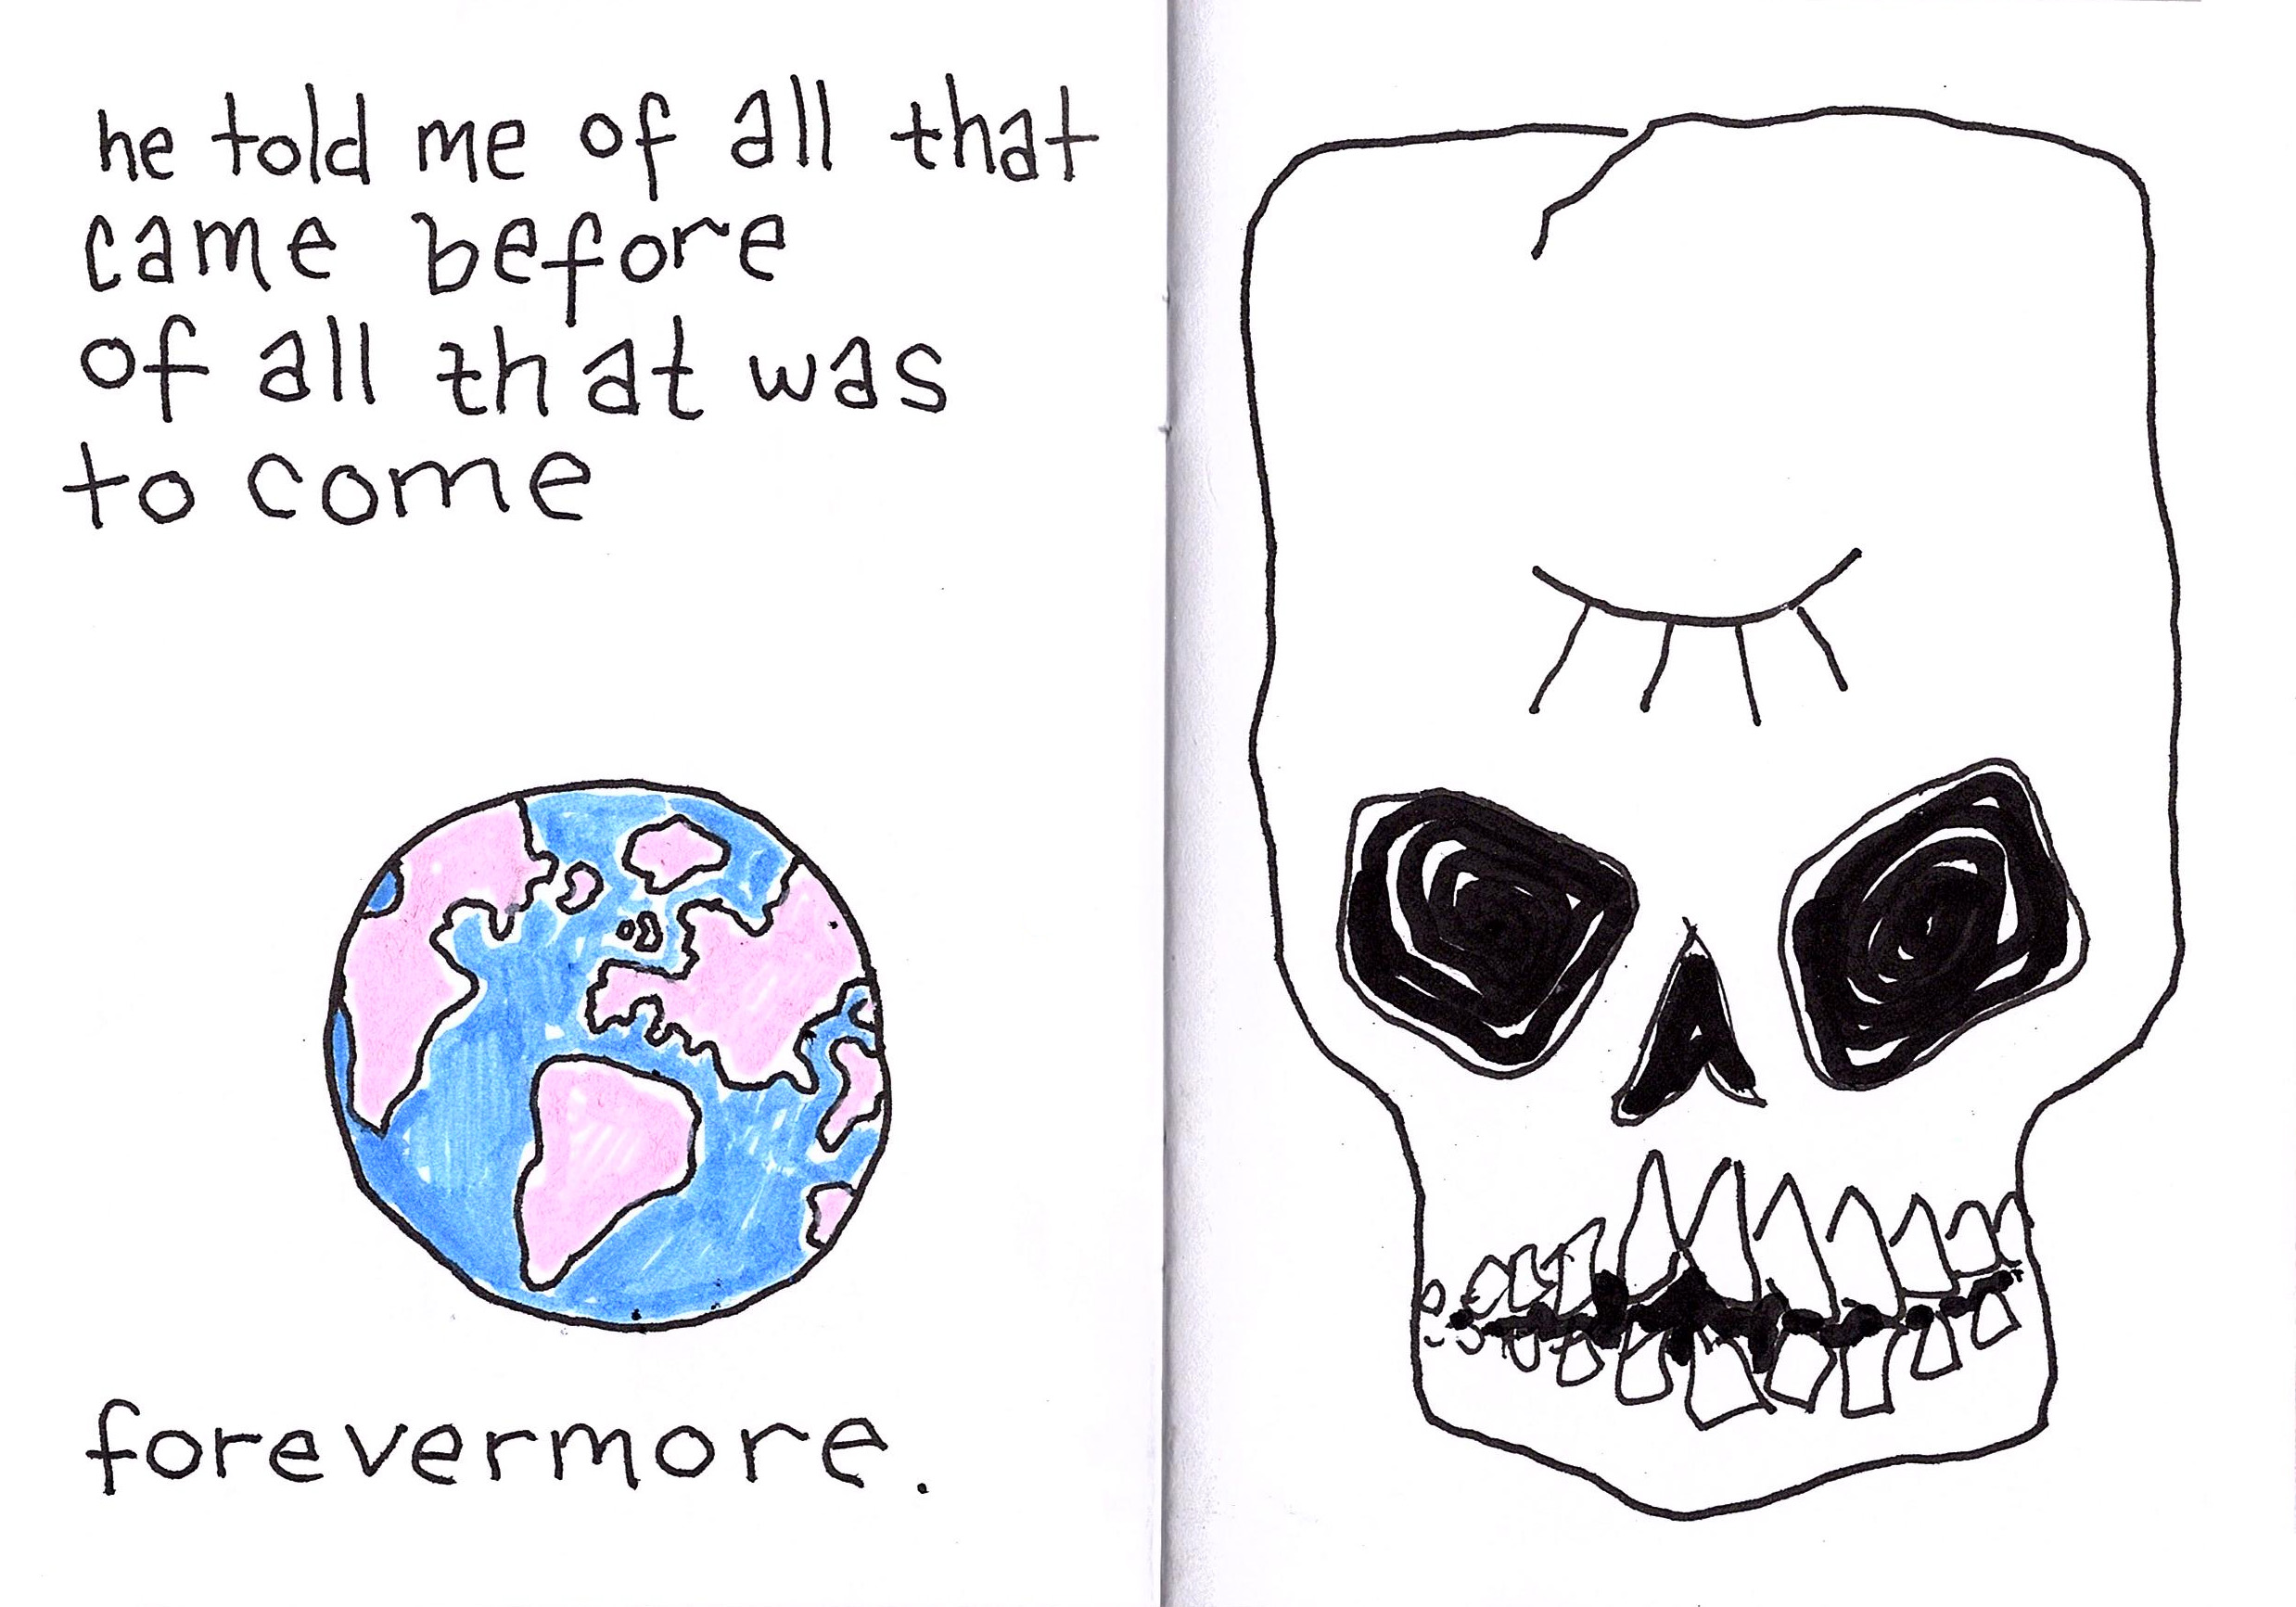 he told me of all that
came before
of all that was
to come
forevermore.